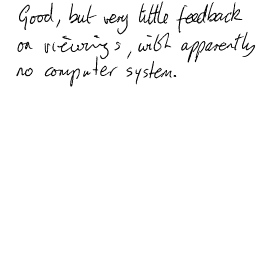 Good, but very little feedback
on viewings, with apparently
no computer system.